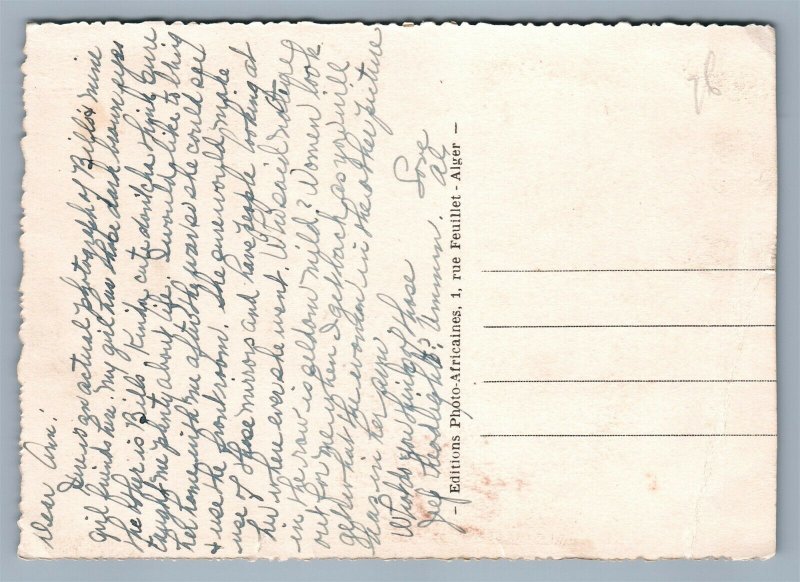 Dear Ann:
Here is an actual photograph of Bill's & mine
girl friends. The one my girl has those dark brown eyes
the other is Bill's. Kinda cute don'tcha think. Sure
taught me plenty about life. I would like to bring
her home with me after the war so she could get
& use the front room. She sure would make
use of those mirrors and have people looking at
her where ever she went. Who said not eyes
in the row is seldom wild? Women look
out for me when I get back as you will
get what the woman in the other picture
has in her
What do you think of those
Jeep Headlights? Ummmm.
Love
Al
— Editions Photo-Africaines, 1, rue Feuillet - Alger —